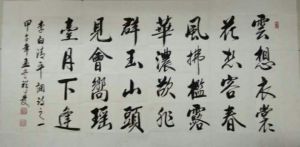 雲想衣裳
花想容春
風拂檻露
華濃若非
群玉山頭
見會嚮瑤
臺月下逢
李白清平調詩之一
甲午年孟冬